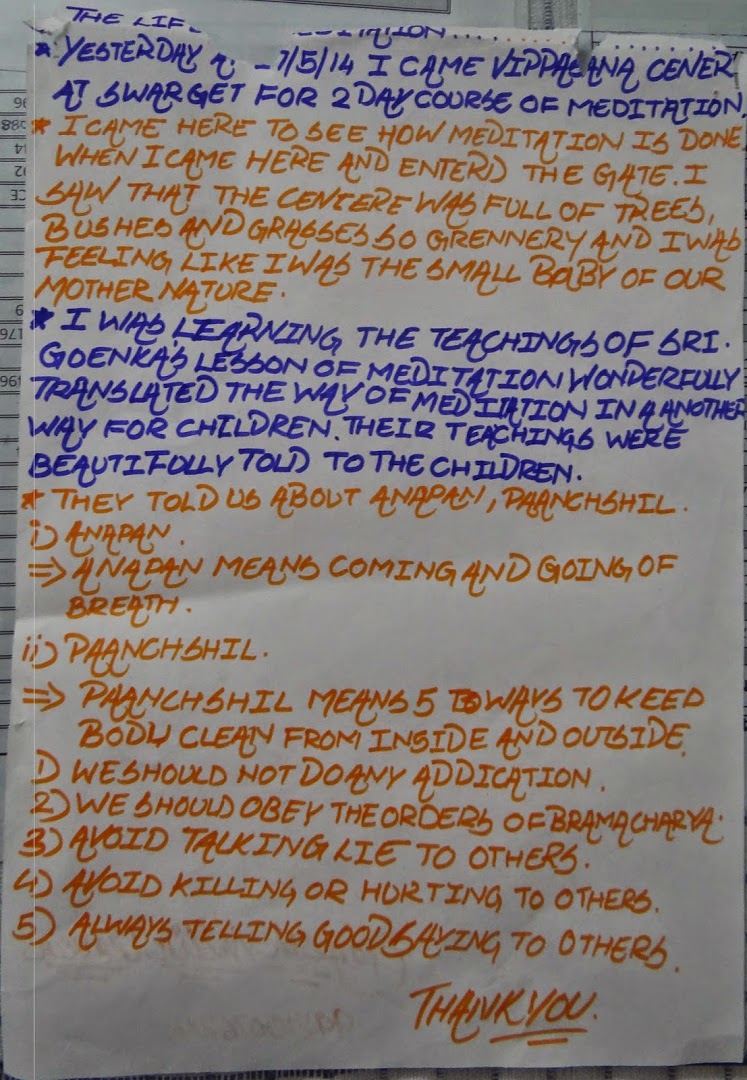 THE LIF
* YESTERDAY 7/5/14 I CAME VIPPASANA CENER
AT SWARGET FOR 2 DAY COURSE OF MEDITATION.
* I CAME HERE TO SEE HOW MEDITATION IS DONE
WHEN I CAME HERE AND ENTERD THE GATE. I
SAW THAT THE CENTERE WAS FULL OF TREES,
BUSHES AND GRASSES SO GRENNERY AND I WAS
FEELING LIKE I WAS THE SMALL BABY OF OUR
MOTHER NATURE.
* I WAS LEARNING THE TEACHINGS OF SRI.
GOENKA'S LESSON OF MEDITATION WONDERFULLY
TRANSLATED THE WAY OF MEDITATION IN A ANOTHER
WAY FOR CHILDREN. THEIR TEACHINGS WERE
BEAUTIFULLY TOLD TO THE CHILDREN.
* THEY TOLD US ABOUT ANAPAN, PAANCHSHIL.
i) ANAPAN.
⇒ ANAPAN MEANS COMING AND GOING OF
BREATH.
ii) PAANCHSHIL.
⇒ PAANCHSHIL MEANS 5 WAYS TO KEED
BODY CLEAN FROM INSIDE AND OUTSIDE.
1) WE SHOULD NOT DO ANY ADDICATION.
2) WE SHOULD OBEY THE ORDERS OF BRAMACHARYA.
3) AVOID TALKING LIE TO OTHERS.
4) AVOID KILLING OR HURTING TO OTHERS.
5) ALWAYS TELLING GOOD SAYING TO OTHERS.
THANK YOU.